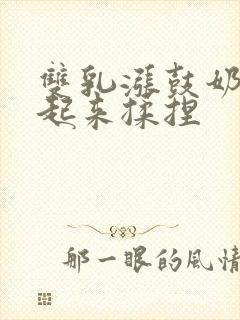 雙乳漲鼓奶
起来揉捏
那一眼的风情